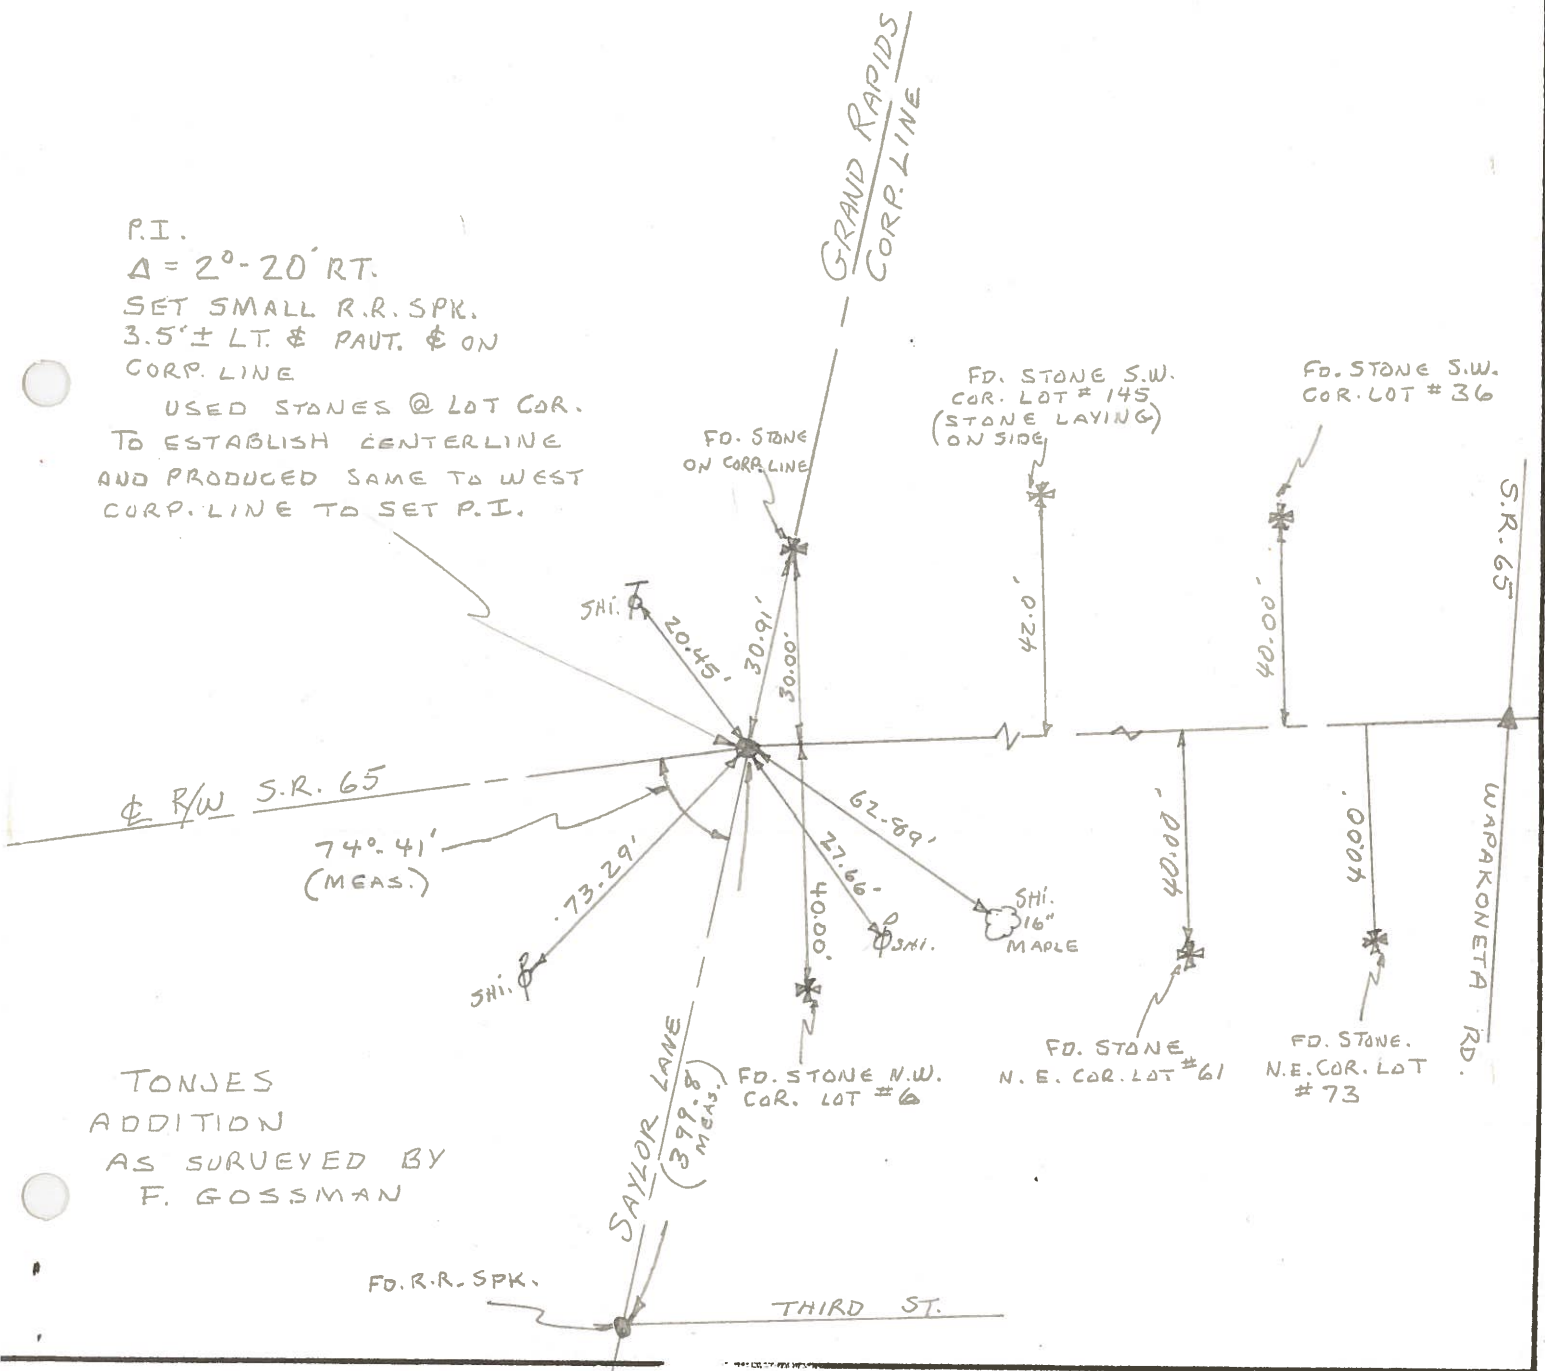 GRAND RAPIDS
CORP. LINE
P.I.
Δ = 2°-20' RT.
SET SMALL R.R. SPK.
3.5'± LT. ℄ PAVT. ℄ ON
CORP. LINE
USED STONES @ LOT COR.
TO ESTABLISH CENTERLINE
AND PRODUCED SAME TO WEST
CORP. LINE TO SET P.I.
FD. STONE
ON CORP. LINE
FD. STONE S.W.
COR. LOT # 145
(STONE LAYING)
ON SIDE
FD. STONE S.W.
COR. LOT # 36
S.R. 65
SHI.
20.45'
30.91'
30.00'
42.0'
40.00'
℄ R/W S.R. 65
74°-41'
(MEAS.)
73.29'
SHI.
62.89'
27.66'
40.00'
SHI.
SHI.
16"
MAPLE
40.00'
40.00'
WAPAKONETA RD.
FD. STONE N.W.
COR. LOT # 6
FD. STONE
N.E. COR. LOT #61
FD. STONE.
N.E. COR. LOT
# 73
SAYLOR LANE
(399.8
MEAS.)
TONJES
ADDITION
AS SURVEYED BY
F. GOSSMAN
FD. R.R. SPK.
THIRD ST.